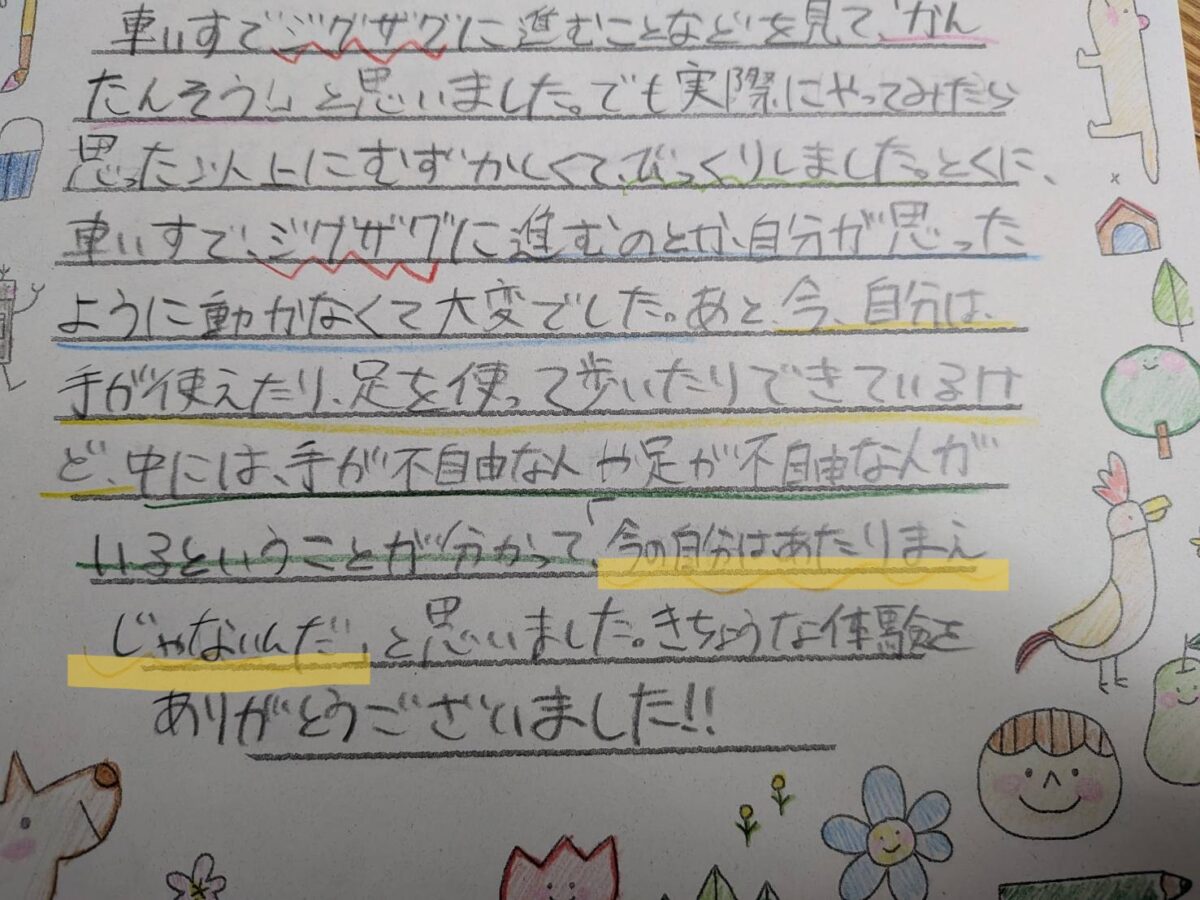 車いすでジグザグに進むことなどを見て、「かん
たんそう!」と思いました。でも実際にやってみたら
思った以上にむずかしくて、びっくりしました。とくに、
車いすで、ジグザグに進むのとか、自分が思った
ように動かなくて大変でした。あと、今、自分は、
手が使えたり、足を使って歩いたりできているけ
ど、中には、手が不自由な人や足が不自由な人が
いるということが分かって、「今の自分はあたりまえ
じゃないんだ」と思いました。きちょうな体験を
ありがとうございました!!